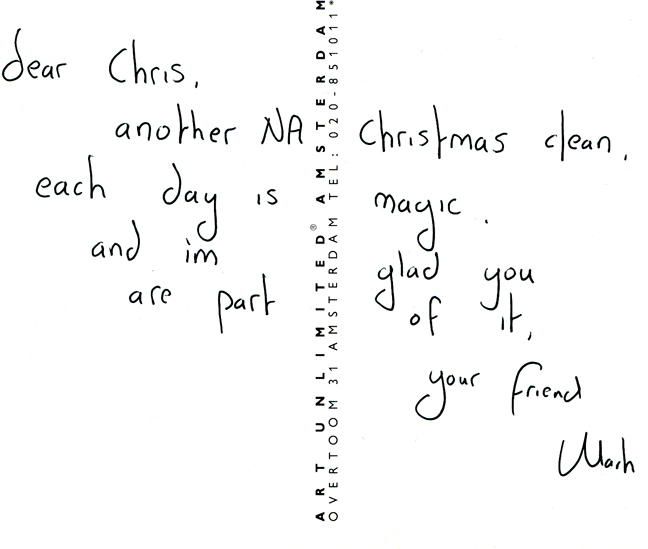 dear Chris,
another NA Christmas clean,
each day is magic.
and im glad you
are part of it,
your friend
ART UNLIMITED® AMSTERDAM
OVERTOOM 31 AMSTERDAM TEL: 020-851011*